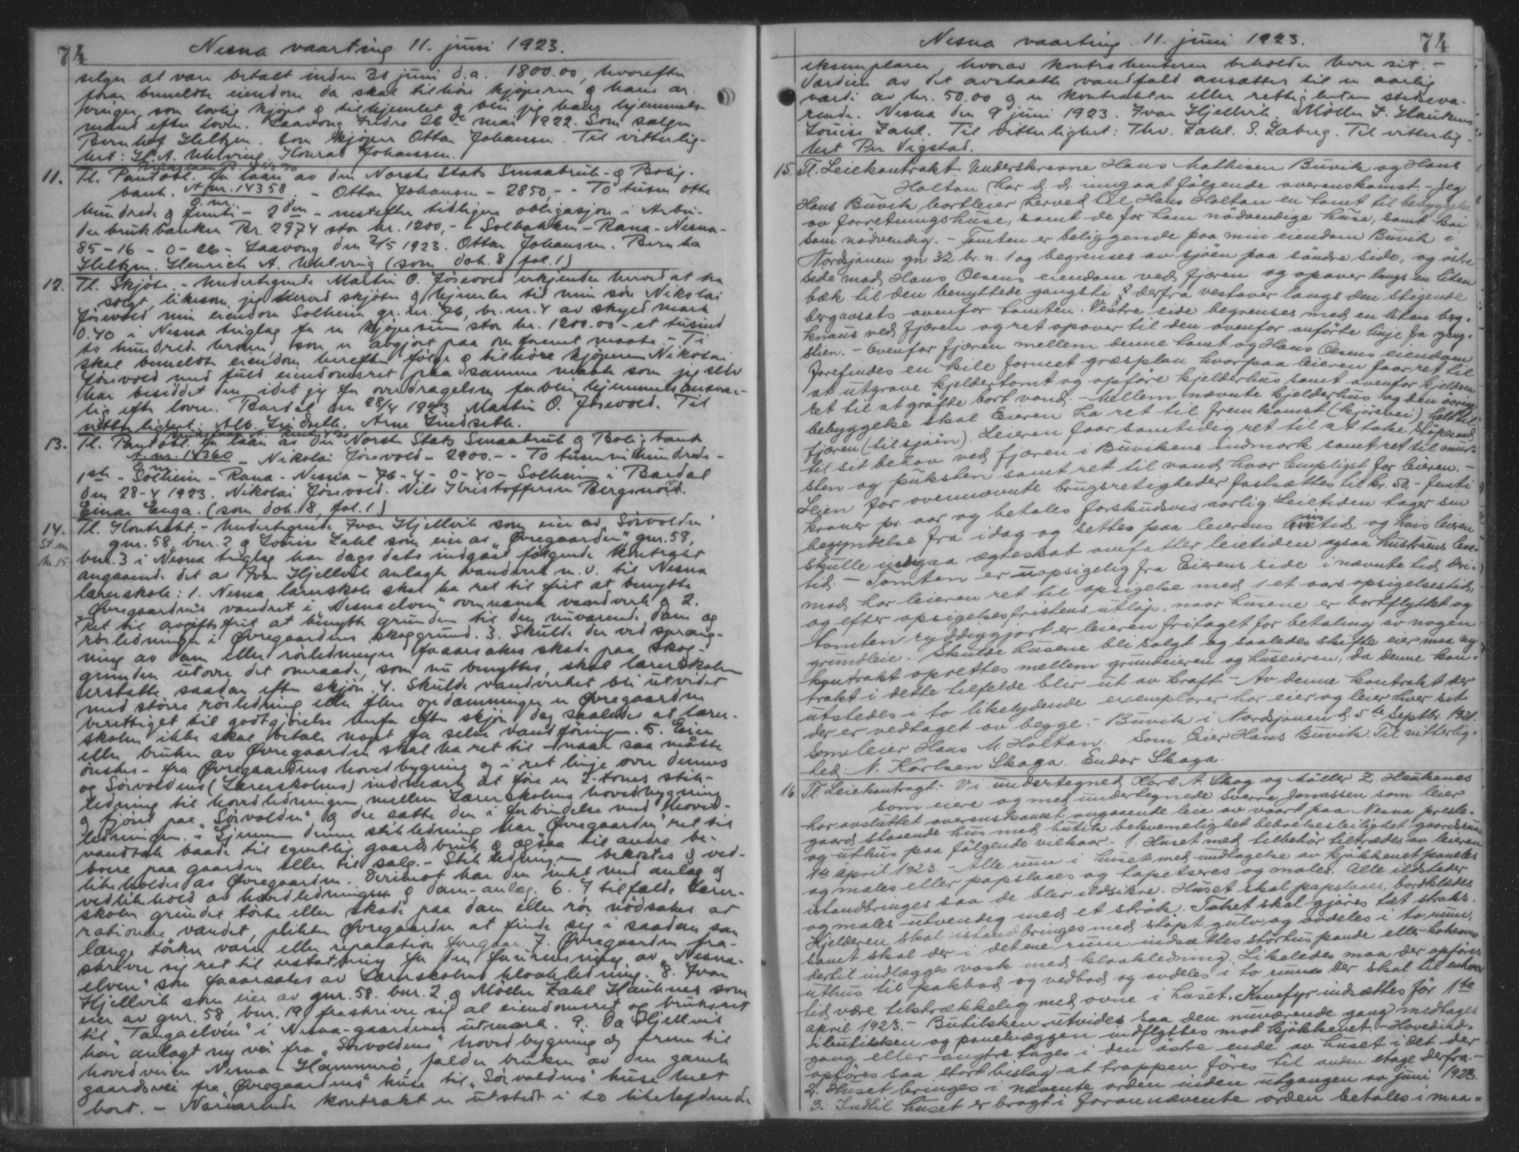 74 Nesna vaarting 11. juni 1923.
selger at være betalt inden 30 juni d.a. 1800.00, hvorefter
bemeldte eiendom da skal tilhøre kjøperen & hans ar-
vinger som lovlig kjøpt & tilhjemlet & blir jeg hans hjemmels-
mand efter loven. Laavong Fredre 26de mai 1922. Som selger
Bernhof Heltzen. Som kjøper Ottar Johansen. Til vitterlig-
het: H. A. Uhlvring, Konrad Johanssen.
11. Tl. Pantobl. for laan av den Norske Stats Smaabruk- & Bolig-
bank. A. nr. 14358 - Ottar Johansen - 2850 - - To tusen otte
hundrede & femti - 2den - nestefter tidligere obligasjon i Arbei-
derbrukbanken Nr. 2974 stor kr. 1200, - Solbakken - Rana - Nesna -
85 - 16 - 0 - 26 - Laavong den 2/5 1923. Ottar Johansen. Bernha
Heltzen. Henrich A. Uhlvring (som dok. 8 fol. 1)
12. Tl. Skjøte. - Undertegnede Martin O. Jøsevold erkjender herved at ha
solgt, likesom jeg herved skjøter & hjemler til min søn Nikolai
Jøsevold min eiendom Solheim gr. nr. 76, br. nr. 4 av skyld mark
0.40 i Nesna tinglag for en kjøpesum stor kr. 1200.00 - et tusind
to hundrede kroner, som er avgjort paa omforenet maate. - Ti
skal bemeldte eiendom herefter følge & tilhøre kjøperen Nikolai
Jøsevold med fuld eiendomsret paa samme maate som jeg selv
har besiddet den idet jeg for overdragelsen forblir hjemmels ansvar-
lig efter loven. Bardal den 28/4 1923. Martin O. Jøsevold. Til
vitterlighet: Alb. Lindseth. Arne Lindseth.
13. Tl. Pantobl. for laan av Den Norske Stats Smaabruk & Boligbank
A. nr. 14360 - Nikolai Jøsevold - 2900. - - To tusen nihundrede -
1ste - Solheim - Rana - Nesna - 76 - 4 - 0 - 40 - Solheim i Bardal
den 28-4 1923. Nikolai Jøsevold. Nils Kristoffersen Bergsnov.
Einar Enga. (som dok. 8, fol. 1)
14. Tl. Kontrakt. - Undertegnede Ivar Hjellvik som eier av "Sørvolden"
gnr. 58, bnr. 2 & Louise Zahl som eier av "Øvregaarden" gnr. 58,
bnr. 3 i Nesna tinglag har dags dato indgaat følgende kontrakt
angaaende det av Ivar Hjellvik anlagte vandverk m.v. til Nesna
lærerskole: 1. Nesna lærerskole skal ha ret til frit at benytte
"Øvregaardens" vandret i "Nesnaelven" ovennævnte vandverk & 2.
ret til avgiftsfrit at benytte grunden til den nuværende dam og
rørledninger i Øvregaardens skoggrund. 3. Skulde der ved spræng-
ning av dam eller rørledninger foraarsakes skade paa skog-
grunden utover det omraade, som nu benyttes, skal lærerskolen
erstatte saadan efter skjøn. 4. Skulde vandverket bli utvidet
med større rørledning eller flere opdæmninger er Øvregaarden
berettiget til godtgjørelse herfor efter skjøn dog saaledes at lærer-
skolen ikke skal betale noget for selve vandføringen. 5. Eier
eller bruker av Øvregaarden skal ha ret til - naar saa maatte
ønskes - fra Øvregaardens hovedbygning og i ret linje over dennes
og Sørvoldens (Lærerskolens) indmark at føre en 2-toms stik-
ledning til hovedledningen mellem Lærerskolens hovedbygning
& fjøset paa "Sørvolden" & der sætte den i forbindelse med hoved-
ledningen. Gjennem denne stikledning har "Øvregaarden" ret til
vandtak baade til egentlig gaardsbruk & ogsaa til andre be-
boere paa gaarden eller til salg. - Stikledningen bekostes & ved-
likeholdes av Øvregaarden. Derimot har den intet med anlæg &
vedlikehold av hovedledningen & dam-anlæg. 6. I tilfælde lærer-
skolen grundet tørke eller skade paa dam eller rør nødsakes at
rationere vandet, plikter Øvregaarden at finde sig i saadan saa
længe tørken varer eller reparation foregaar. 7. Øvregaarden fra-
skriver sig ret til erstatning for den forurensning av "Nesna-
elven" som foraarsakes av Lærerskolens kloakledning. 8. Ivar
Hjellvik som eier av gnr. 58, bnr. 2 & Møller Zahl Haukenes som
eier av gnr. 58, bnr. 19 fraskriver sig al eiendomsret og bruksret
til "Tangaelven" i Nesna-gaardens utmark. 9. Da Hjellvik
har anlagt ny vei fra "Sørvoldens" hovedbygning og frem til
hovedveien Nesna - Hammerø, falder bruken av den gamle
gaardsvei fra "Øvregaardens" huse til "Sørvoldens" huse helt
bort. - Nærværende kontrakt er utstedt i to likelydende
Nesna vaarting 11. juni 1923. 74
eksemplarer, hvorav kontrahenterne beholder hver sit. -
Værdien av det avstaatte vandfald ansættes til en aarlig
værdi av kr. 50.00 & er kontrakten eller rettigheten stedseva-
rende. Nesna den 9 juni 1923. Ivar Hjellvik. Møller Z. Haukenes
Louise Zahl. Til vitterlighet: Thv. Zahl. S. Zaberg. Til vitterlig-
het Per Vigstad.
15. Tl. Leiekontrakt. Underskrevne Hans Mathisen Buvik og Hans
Holtan har d. d. inngaat følgende overenskomst - Jeg
Hans Buvik bortleier herved til Hans Holtan en tomt til bebyggelse
av forretningshuse, samt de for ham nødvendige huse, samt kai
som nødvendig. - Tomten er beliggende paa min eiendom Buvik i
Nordsjonen gnr 32 br. n. 1 og begrenses av sjøen paa søndre side, og østre
side mod Hans Olsens eiendom ved fjæren og opover langs en liten
bæk til den benyttede gangsti & derfra vestover langs den stigende
bergavsets ovenfor tomten. Vestre side begrenses med en liten berg-
knaus ved fjæren og ret opover til den ovenfor anførte linje fra gang-
stien. - Ovenfor fjæren mellem denne tomt og Hans Olsens eiendom
forefindes en kile formet græsplan hvorpaa leieren faar ret til
at utgrave kjeldertomt og opføre kjelderhus samt ovenfor kjelderen
ret til at grøfte bort vand. - Mellem nævnte kjelderhus og den øvrige
bebyggelse skal Eieren ha ret til fremkomst (kjørevei) helt til
fjæren (til sjøen). Leieren faar samtidig ret til at take støpesand
til sit behov ved fjæren i Buvikens indmark samt ret til mur-
sten og puksten samt ret til vand hvor lempeligst for leieren. -
Leien for ovennævnte bruksretigheder fastsættes til kr. 50,- femti
kroner pr. aar og betales forskudsvis aarlig. Leietiden tager sin
begyndelse fra idag og settes paa leierens levetid, og hvis leieren
skulle indgaa ægteskap omfatter leietiden ogsaa hustruens leve-
tid. - Tomten er uopsigelig fra Eierens side i nævnte tid, der-
mod har leieren ret til opsigelse med 1 et aars opsigelsestid,
og efter opsigelsesfristens utløp, naar husene er bortflyttet og
tomten ryddiggjort er leieren fritaget for betaling av nogen
grundleie. Skulde husene bli solgt og saaledes skifte eier maa ny
kontrakt oprettes mellem grundeieren og huseieren, da denne kon-
trakt i dette tilfelde blir ut av kraft. - Av denne kontrakt der
utstedes i to likelydende exemplarer har eier og leier hver sit
der er vedtaget av begge. - Buvik i Nordsjonen d. 5te Septbr. 1921.
Som leier Hans M Holtan. Som Eier Hans Buvik. Til vitterlig-
hed. N. Karlsen Skaga. Endor Skaga.
16 Tl. Leiekontragt. - Vi undertegned Karl A. Skog og Møller Z. Haukenes
som eiere og med undertegnede Sverre Jonassen som leier
har avsluttet overenskomst angaaende leie av vort paa Nesna preste-
gaard staaende hus med butik bekvemmelighet beboelsesleilighet gaardsrum
og uthus paa følgende vilkaar. - 1. Huset med tilbehør tiltrædes av leieren
1ste april 1923. - Alle rum i huset med undtagelse av kjøkkenet paneles
og males eller papslaaes og tapetseres og males. Alle ildsteder
istandbringes saa de blir ildsikre. Huset skal papslaaes, bordklædes
og males utvendig med et strøk. Taket skal gjøres tæt straks.
Kjelderen skal istandbringes med støpt gulv og avdeles i to rum,
samt skal der i det ene rum indsættes storhuspande eller kokeovn
dertil indlægges vask med kloakledning. Likeledes maa der opføres
uthus til pakbod og vedbod og avdeles i to rum. Der skal til enhver
tid være tilstrækkelig med ovne i huset. Komfyr indsættes før 1ste
april 1923. - Butikken utvides saa den nuværende gang medtages
til butikken og panelvæggen indflyttes mot kjøkkenet. - Hovedind-
gang eller andre tages i den østre ende av huset i det der
opføres saa stort bislag at trappen føres til anden etage derfra. -
2. Huset bringes i nævnte orden inden utgangen av juni 1923.
3. Indtil huset er bragt i forannævnte orden betales i maa-